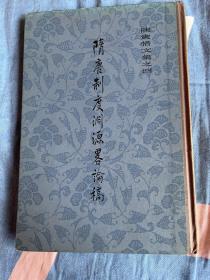 陳寅恪文集之四
隋唐制度淵源畧論稿